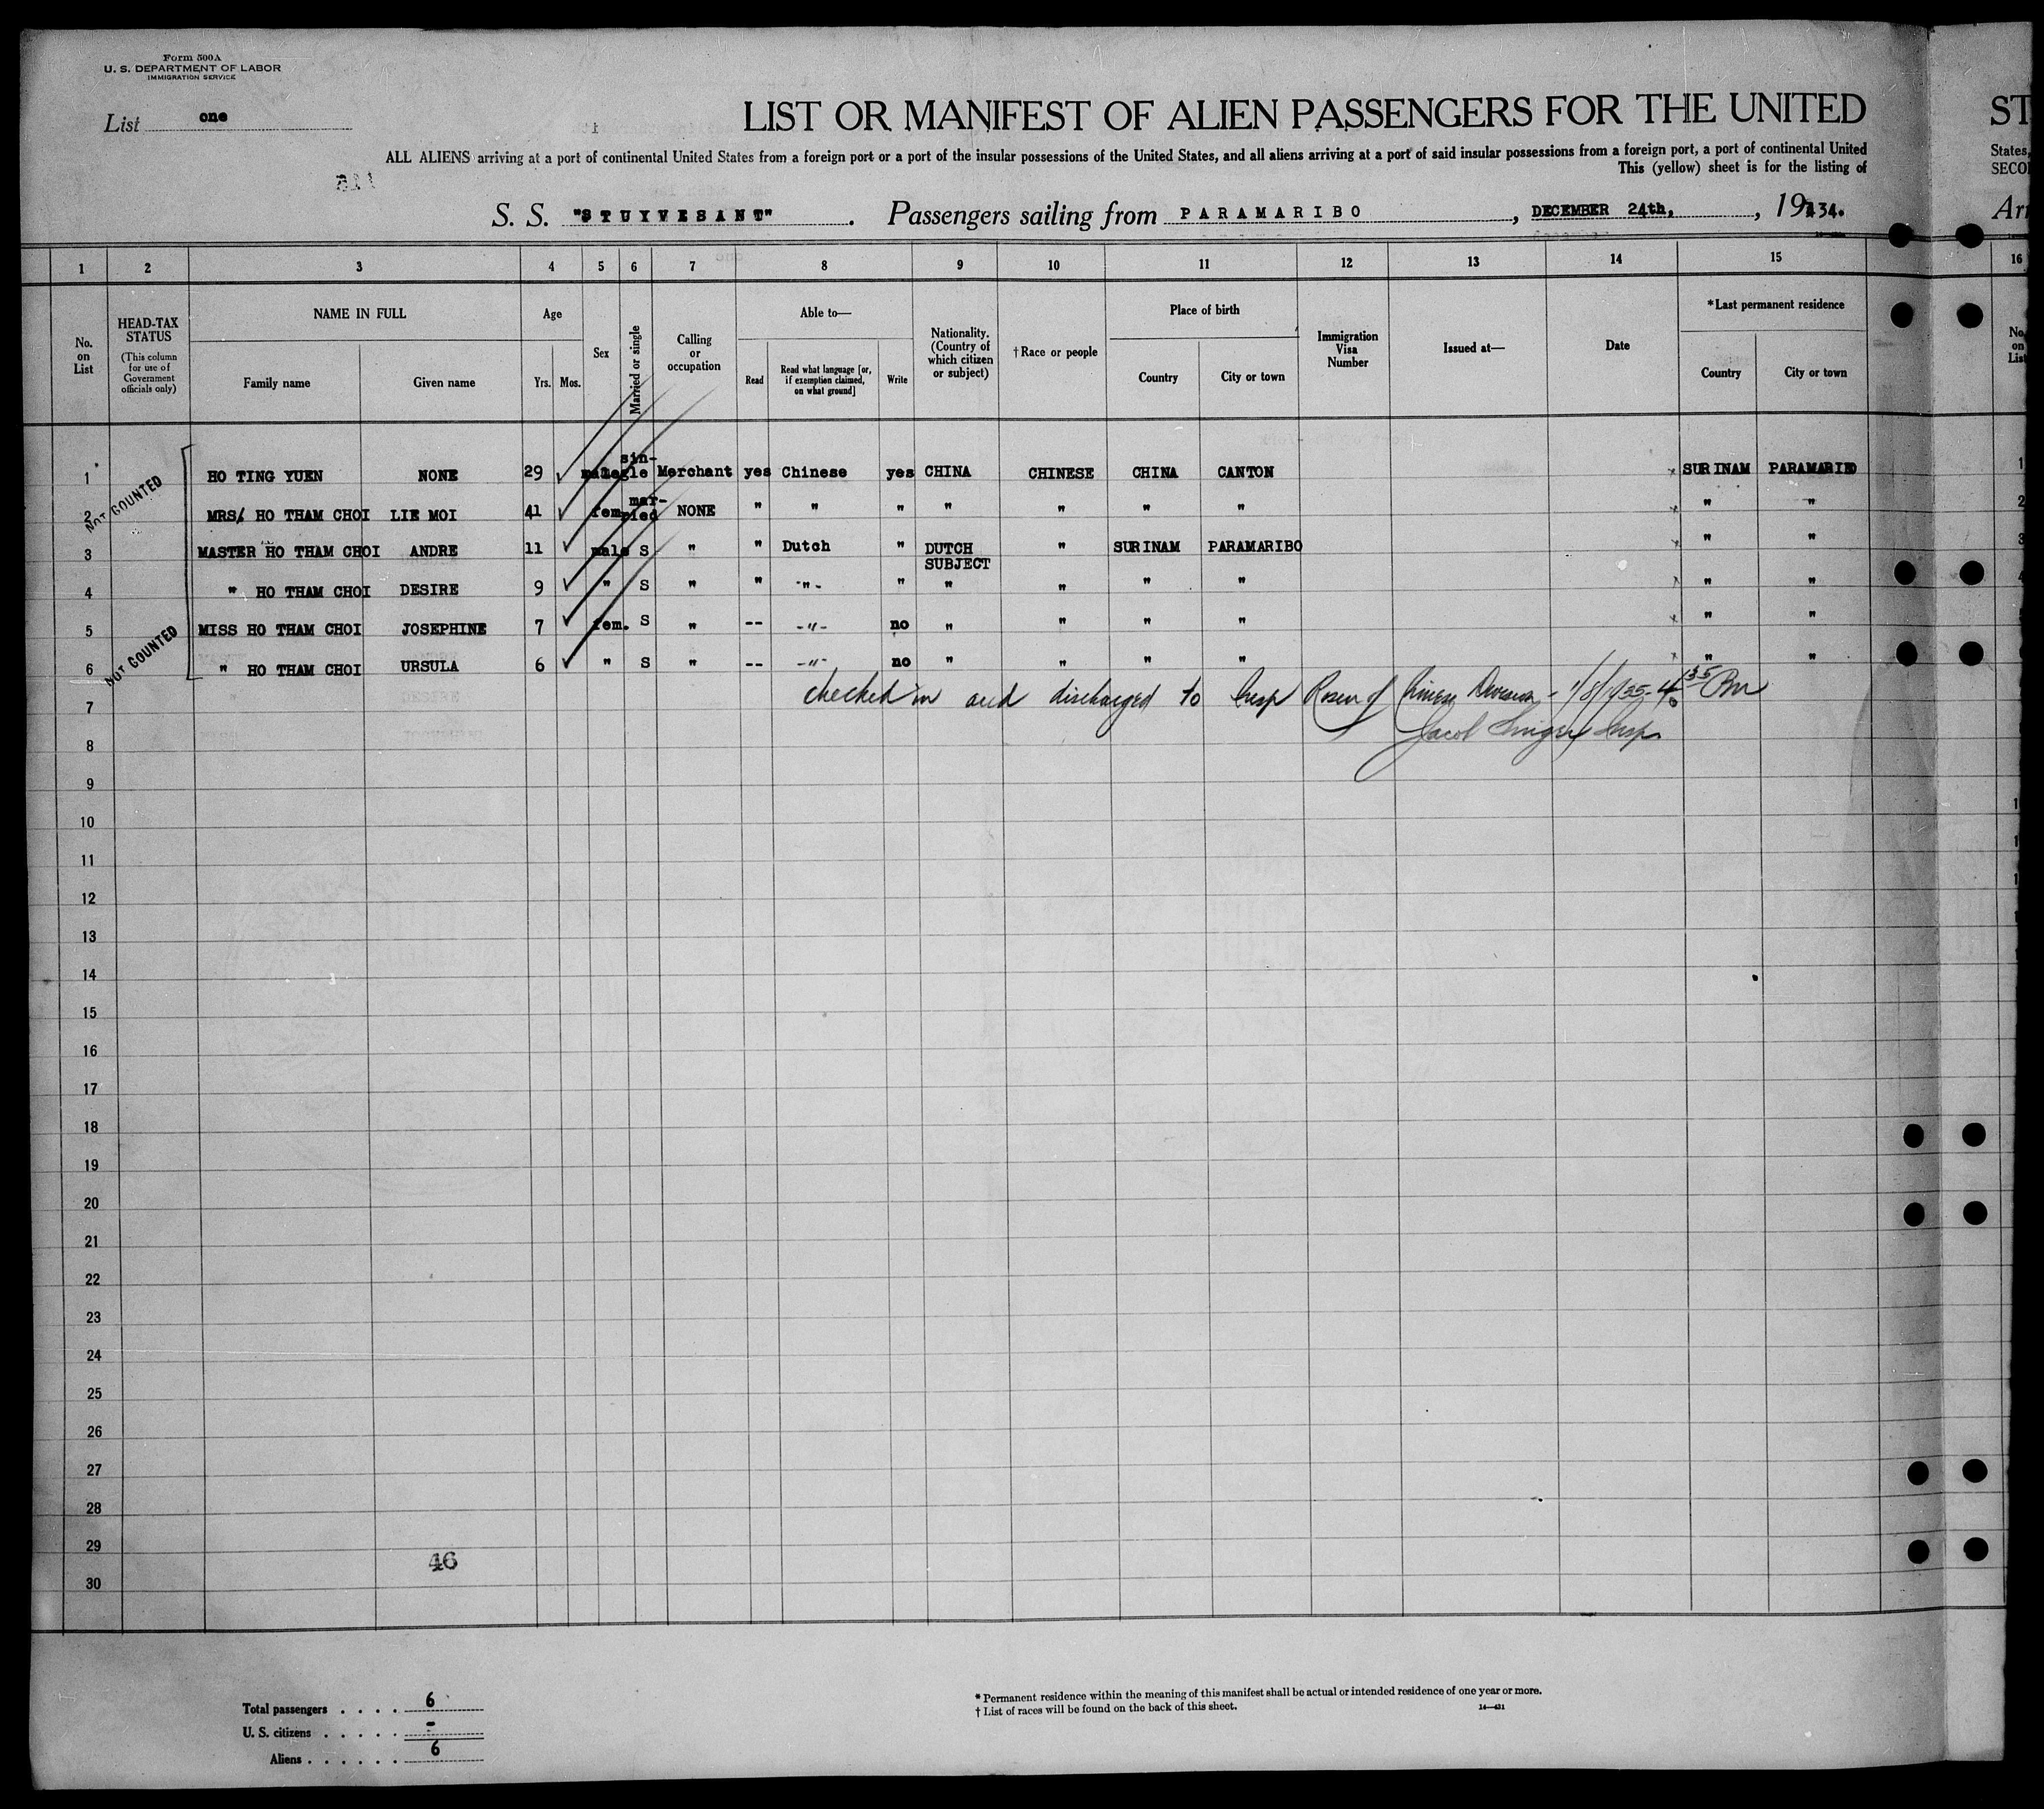 Form 500A
U. S. DEPARTMENT OF LABOR
IMMIGRATION SERVICE
List one
LIST OR MANIFEST OF ALIEN PASSENGERS FOR THE UNITED
ST
ALL ALIENS arriving at a port of continental United States from a foreign port or a port of the insular possessions of the United States, and all aliens arriving at a port of said insular possessions from a foreign port, a port of continental United
States,
This (yellow) sheet is for the listing of
SECO
S. S. "STUYVESANT". Passengers sailing from PARAMARIBO, DECEMBER 24th, , 1934.
Arr
1 2 3 4 5 6 7 8 9 10 11 12 13 14 15 16
No. on List
HEAD-TAX STATUS
(This column for use of Government officials only)
NAME IN FULL
Family name Given name
Age
Yrs. Mos.
Sex
Married or single
Calling or occupation
Able to—
Read
Read what language [or, if exemption claimed, on what ground]
Write
Nationality. (Country of which citizen or subject)
† Race or people
Place of birth
Country City or town
Immigration Visa Number
Issued at—
Date
*Last permanent residence
Country City or town
No. on List
NOT COUNTED
1 HO TING YUEN NONE 29 male sin-gle Merchant yes Chinese yes CHINA CHINESE CHINA CANTON SURINAM PARAMARIBO 1
2 MRS/ HO THAM CHOI LIE MOI 41 fem mar-ried NONE " " " " " " " " " 2
3 MASTER HO THAM CHOI ANDRE 11 male S " " Dutch " DUTCH SUBJECT " SURINAM PARAMARIBO " " 3
4 " HO THAM CHOI DESIRE 9 " S " " -"- " " " " " " " 4
NOT COUNTED
5 MISS HO THAM CHOI JOSEPHINE 7 fem. S " -- -"- no " " " " " "
6 " HO THAM CHOI URSULA 6 " S " -- -"- no " " " " " "
checked in and discharged to Insp Rosen of Chinese Division - 1/8/1935 - 4 35 Pm
7
Jacob Insp.
8
9
10
11
12
13
14
15
16
17
18
19
20
21
22
23
24
25
26
27
28
29
46
30
Total passengers . . . . 6
U. S. citizens . . . . . -
Aliens . . . . . . 6
* Permanent residence within the meaning of this manifest shall be actual or intended residence of one year or more.
† List of races will be found on the back of this sheet.
14—431